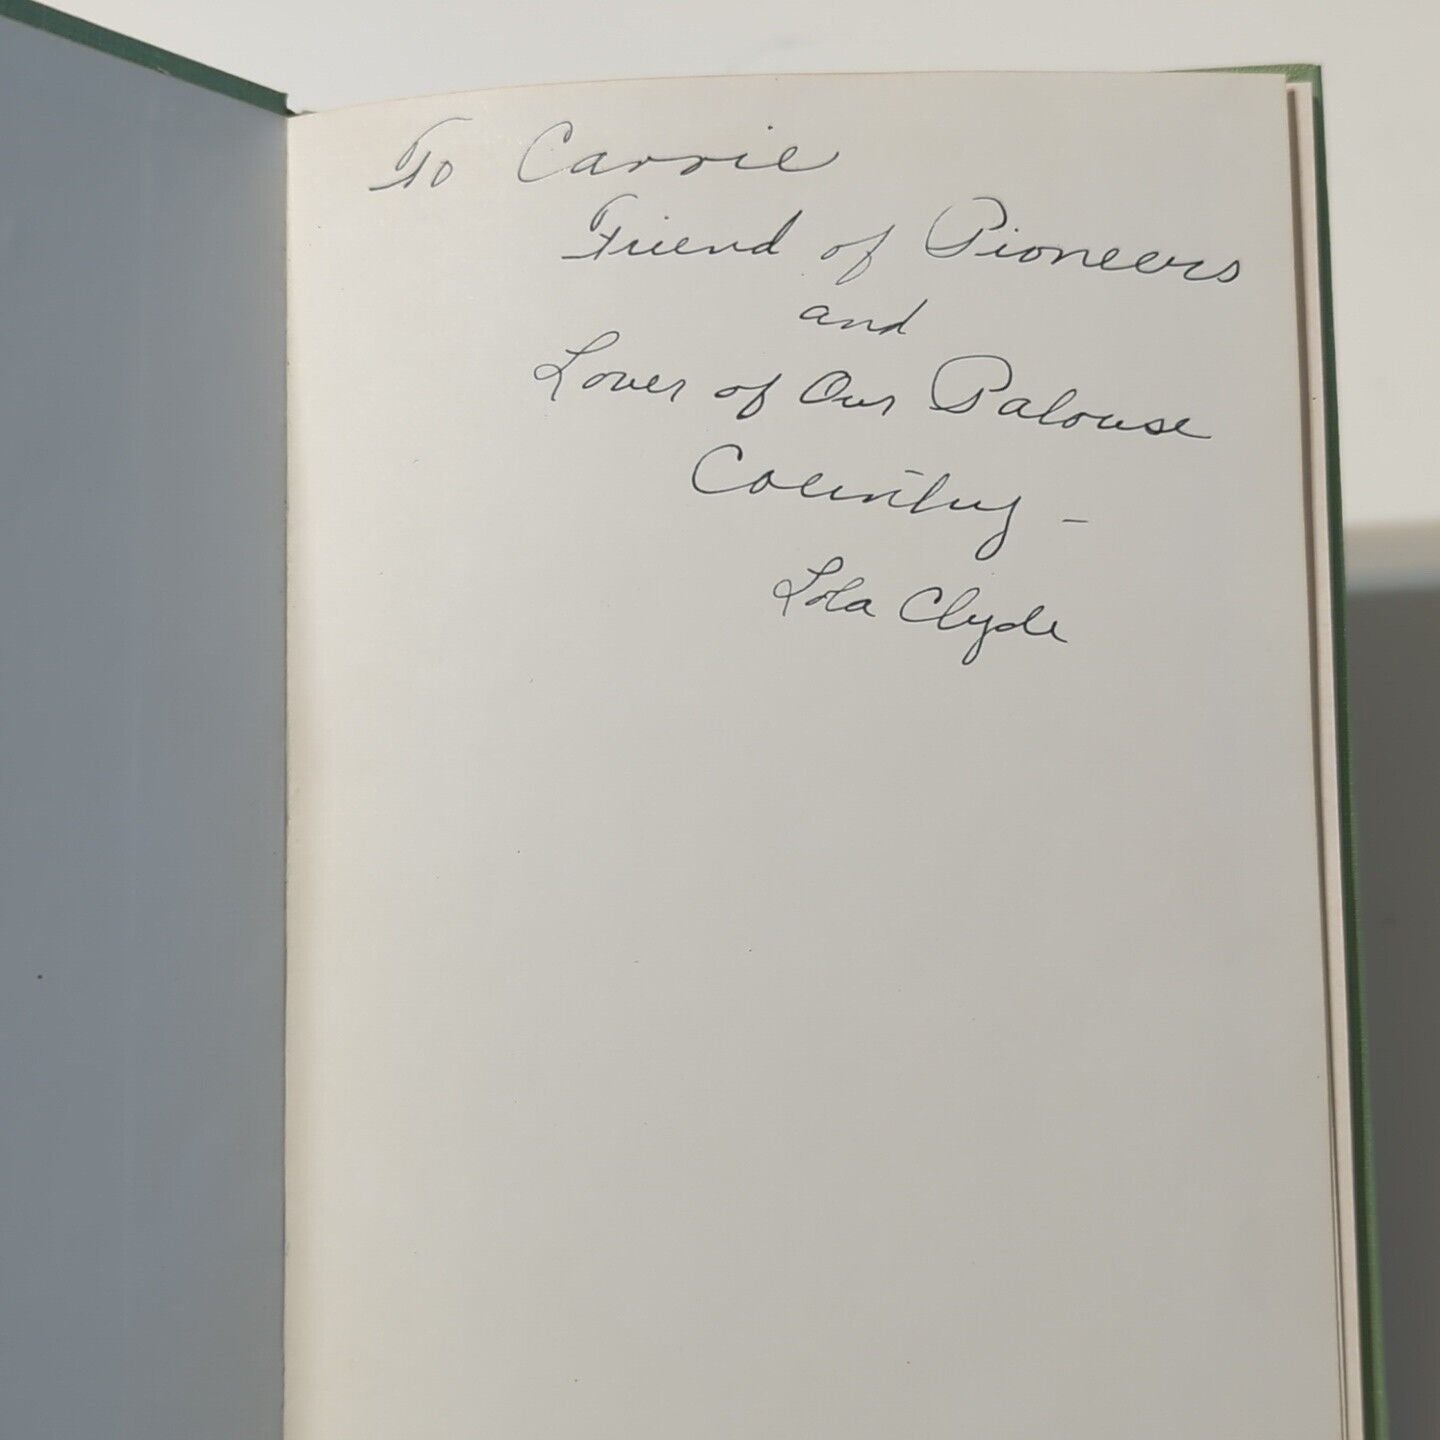 To Carrie
Friend of Pioneers
and
Lover of Our Palouse
Country –
Lola Clyde